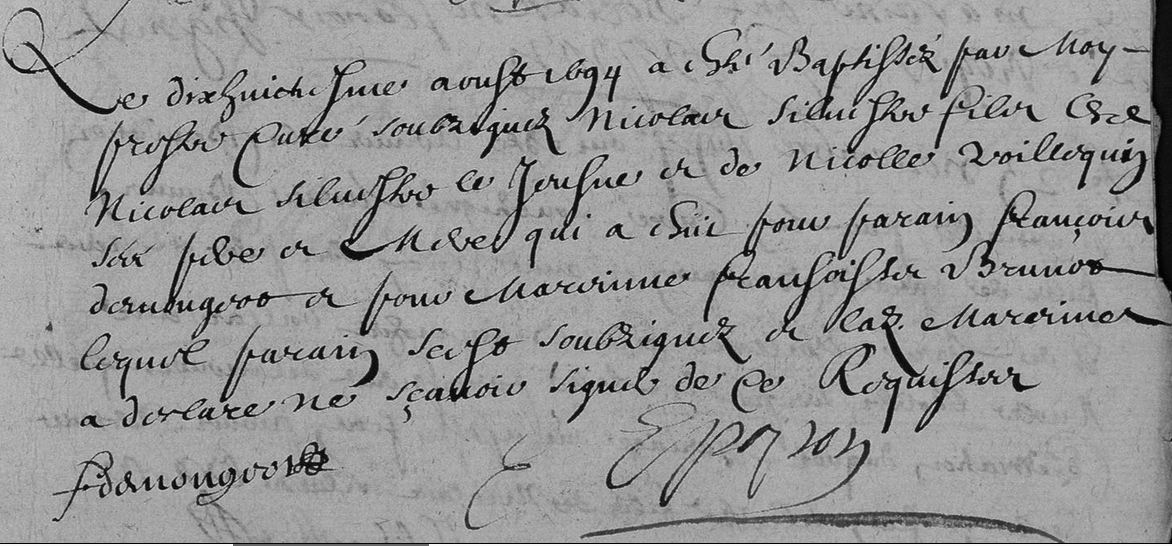 Le dixhuictiesme aoust 1694 a esté Baptissez par Moy
prestre Curé soubzignez Nicolas siluestre filz de
Nicolas siluestre le Jeusne et de Nicolle Voillequin
ses pere et Mere qui a Eüt pour parain François
demongeot et pour Mareinne franhoisse Brunot
lequel parain sest soubzignez et lad. Mareinne
a desclaré ne sçauoir signer de ce Requisse
fdemongeot